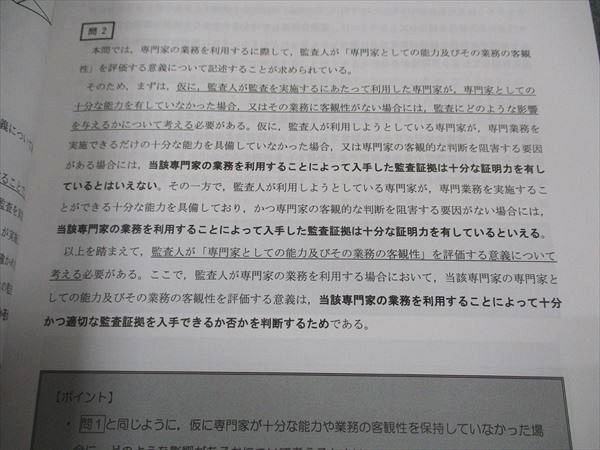 問2
本問では，専門家の業務を利用するに際して，監査人が「専門家としての能力及びその業務の客観
性」を評価する意義について記述することが求められている。
そのため，まずは，仮に，監査人が監査を実施するにあたって利用した専門家が，専門家としての
十分な能力を有していなかった場合，又はその業務に客観性がない場合には，監査にどのような影響
を与えるかについて考える必要がある。仮に，監査人が利用しようとしている専門家が，専門業務を
実施できるだけの十分な能力を具備していなかった場合，又は専門家の客観的な判断を阻害する要因
がある場合には，当該専門家の業務を利用することによって入手した監査証拠は十分な証明力を有し
ているとはいえない。その一方で，監査人が利用しようとしている専門家が，専門業務を実施するこ
とができる十分な能力を具備しており，かつ専門家の客観的な判断を阻害する要因がない場合には，
当該専門家の業務を利用することによって入手した監査証拠は十分な証明力を有しているといえる。
以上を踏まえて，監査人が「専門家としての能力及びその業務の客観性」を評価する意義について
考える必要がある。ここで，監査人が専門家の業務を利用する場合において，当該専門家の専門家と
しての能力及びその業務の客観性を評価する意義は，当該専門家の業務を利用することによって十分
かつ適切な監査証拠を入手できるか否かを判断するためである。
【ポイント】
・問1と同じように，仮に専門家が十分な能力や業務の客観性を保持していなかった場